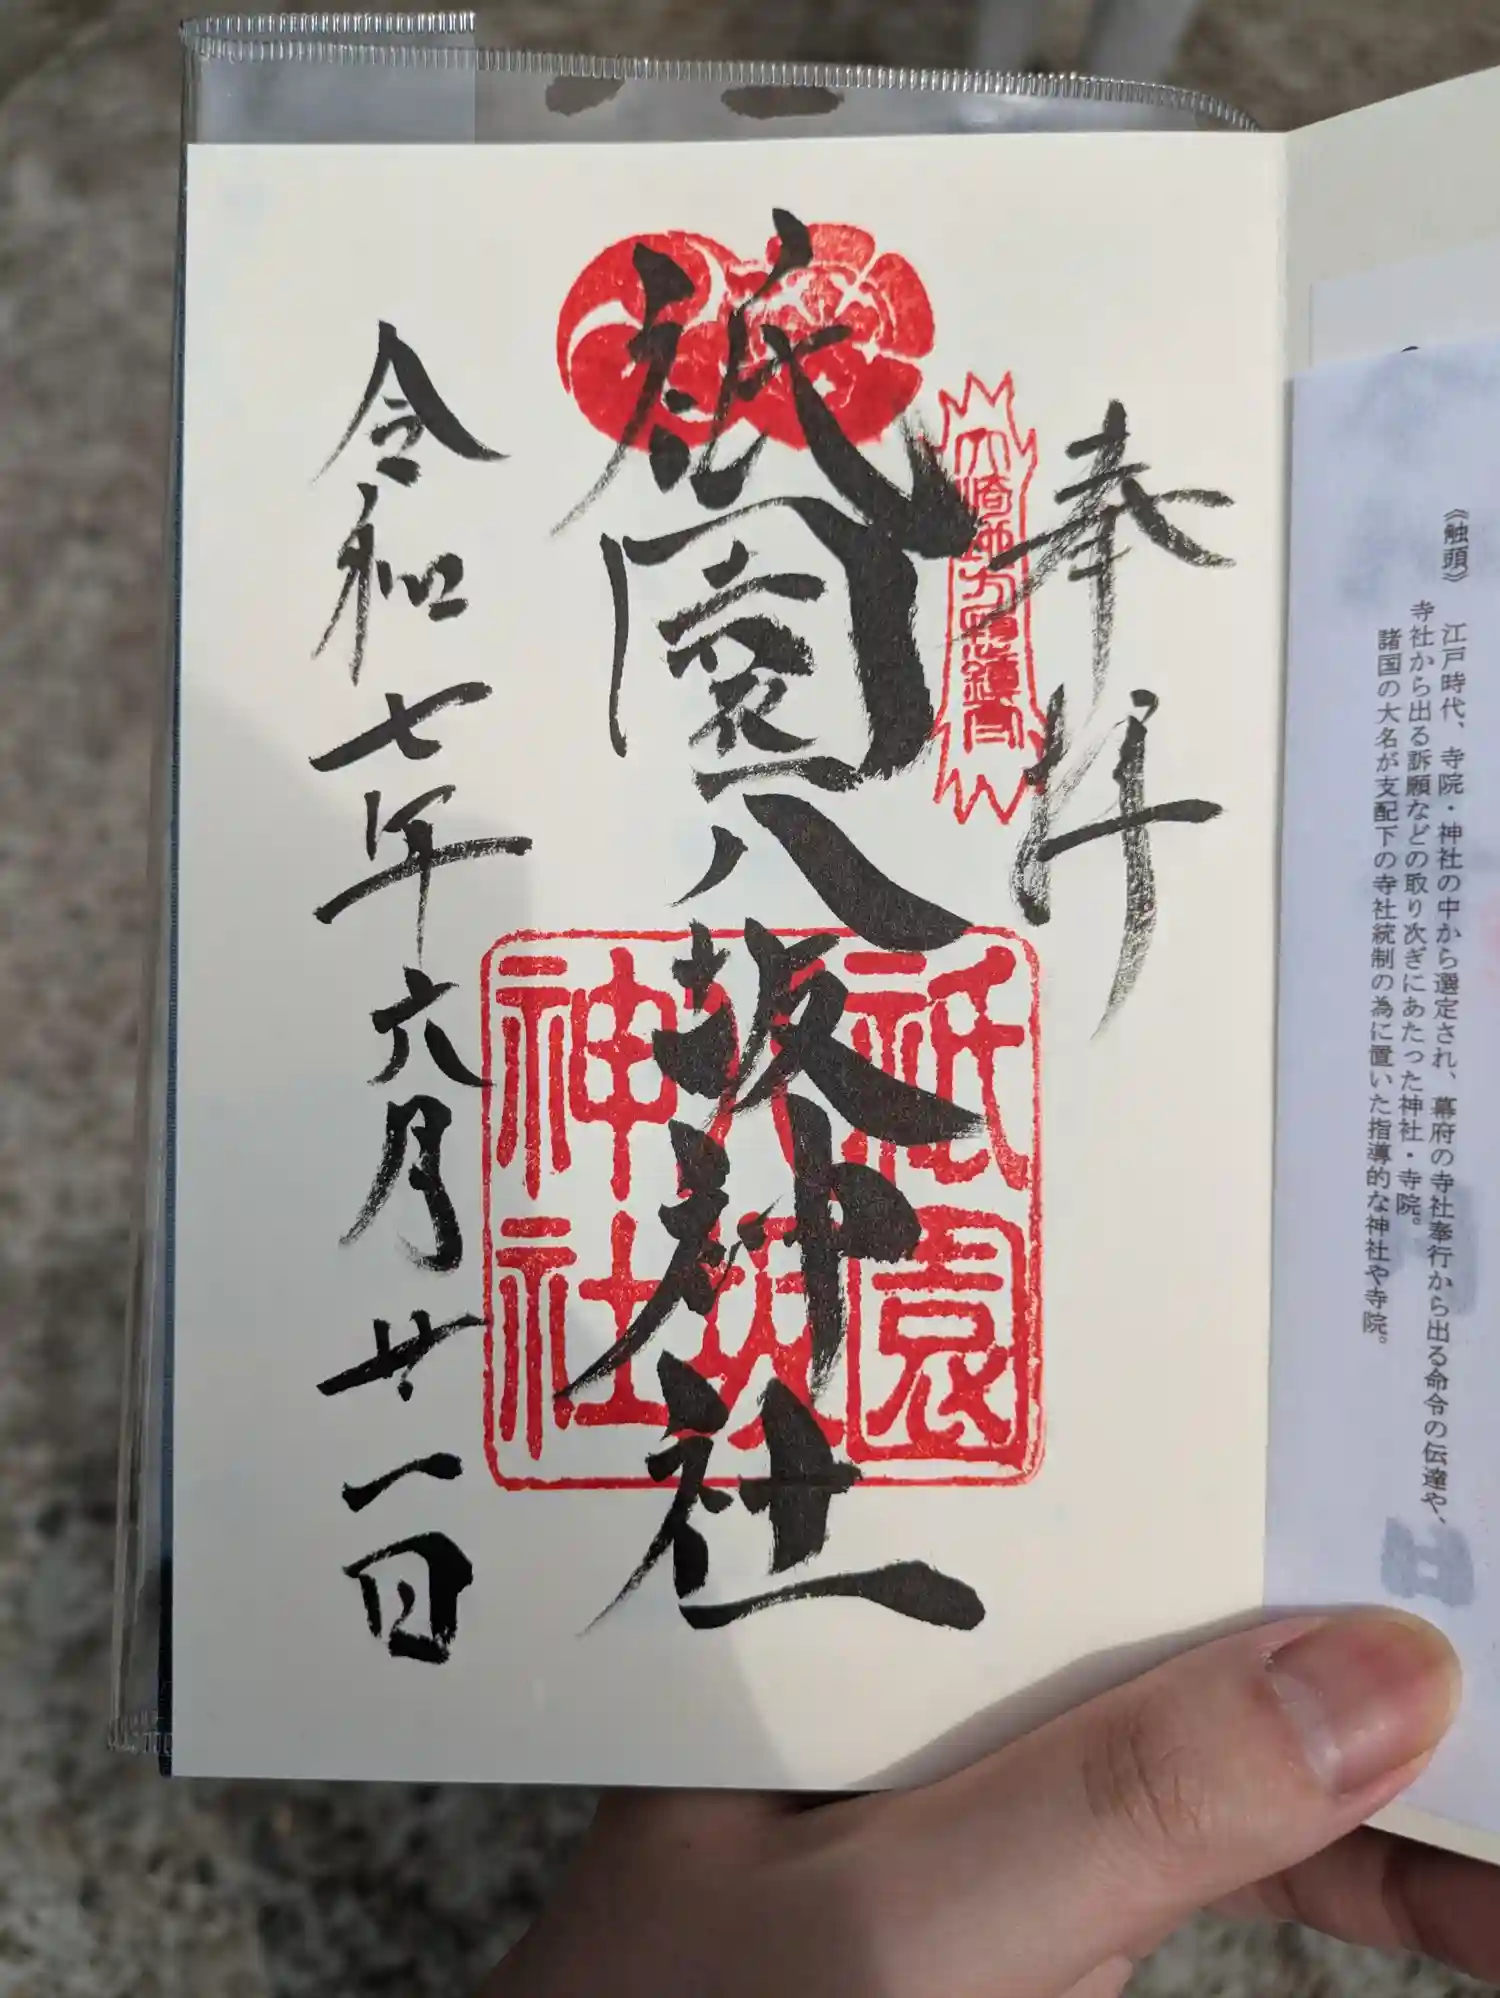 《触頭》 江戸時代、寺院・神社の中から選定され、幕府の寺社奉行から出る命令の伝達や、
寺社から出る訴願などの取り次ぎにあたった神社・寺院。
諸国の大名が支配下の寺社統制の為に置いた指導的な神社や寺院。
奉拝
祇園八坂神社
祇園
八坂
神社
令和七年六月廿一日